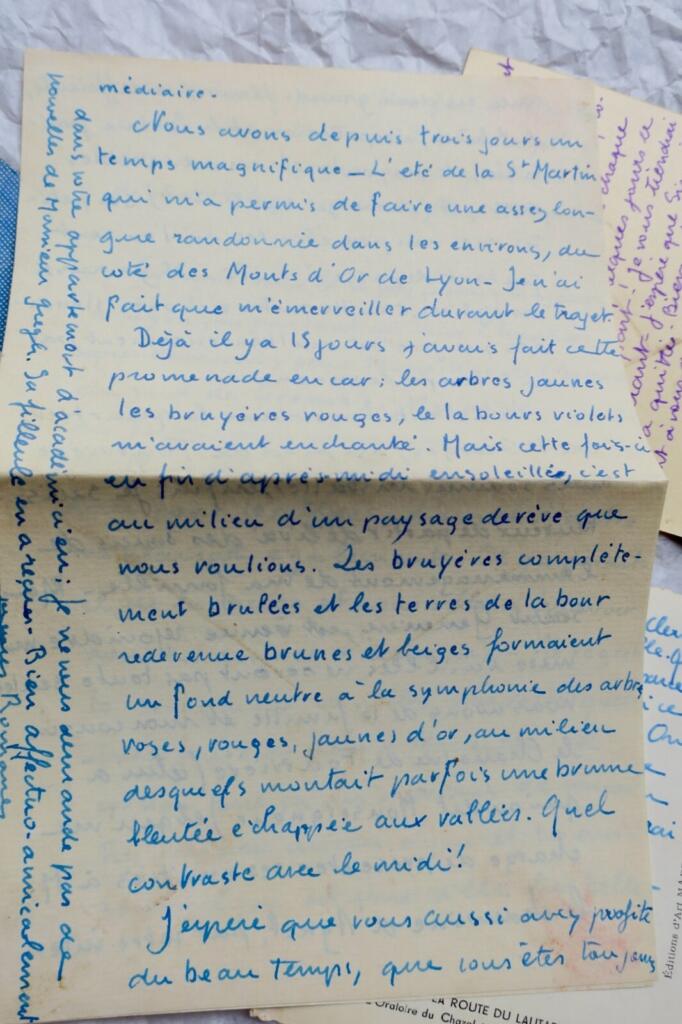 médiaire.
Nous avons depuis trois jours un
temps magnifique – L'eté de la St Martin
qui m'a permis de faire une assez lon-
gue randonnée dans les environs, du
coté des Monts d'Or de Lyon – Je n'ai
fait que m'émerveiller durant le trajet.
Déjà il y a 15 jours j'avais fait cette
promenade en car : les arbres jaunes
les bruyères rouges, le labours violets
m'avaient enchanté. Mais cette fois-ci
en fin d'après-midi ensoleillée, c'est
au milieu d'un paysage de rêve que
nous roulions. Les bruyères complète-
ment brulées et les terres de labour
redevenue brunes et beiges formaient
un fond neutre à la symphonie des arbres
roses, rouges, jaunes d'or, au milieu
desquels montait parfois une brume
bleutée échappée aux vallées. Quel
contraste avec le midi !
J'espère que vous aussi avez profité
du beau temps, que vous êtes toujours
dans votre appartement d'académicien ; je ne vous demande pas de
nouvelles de Monsieur Gregh. Sa filleule en a reçues – Bien affectuo-amicalement
chaque
quelques jours ce
je vous tiendrai
j'espère que Si
a quitter. Bien
à vous
On
Editions d'Art
LA ROUTE DU LAUTAR
Oratoire du Chazel